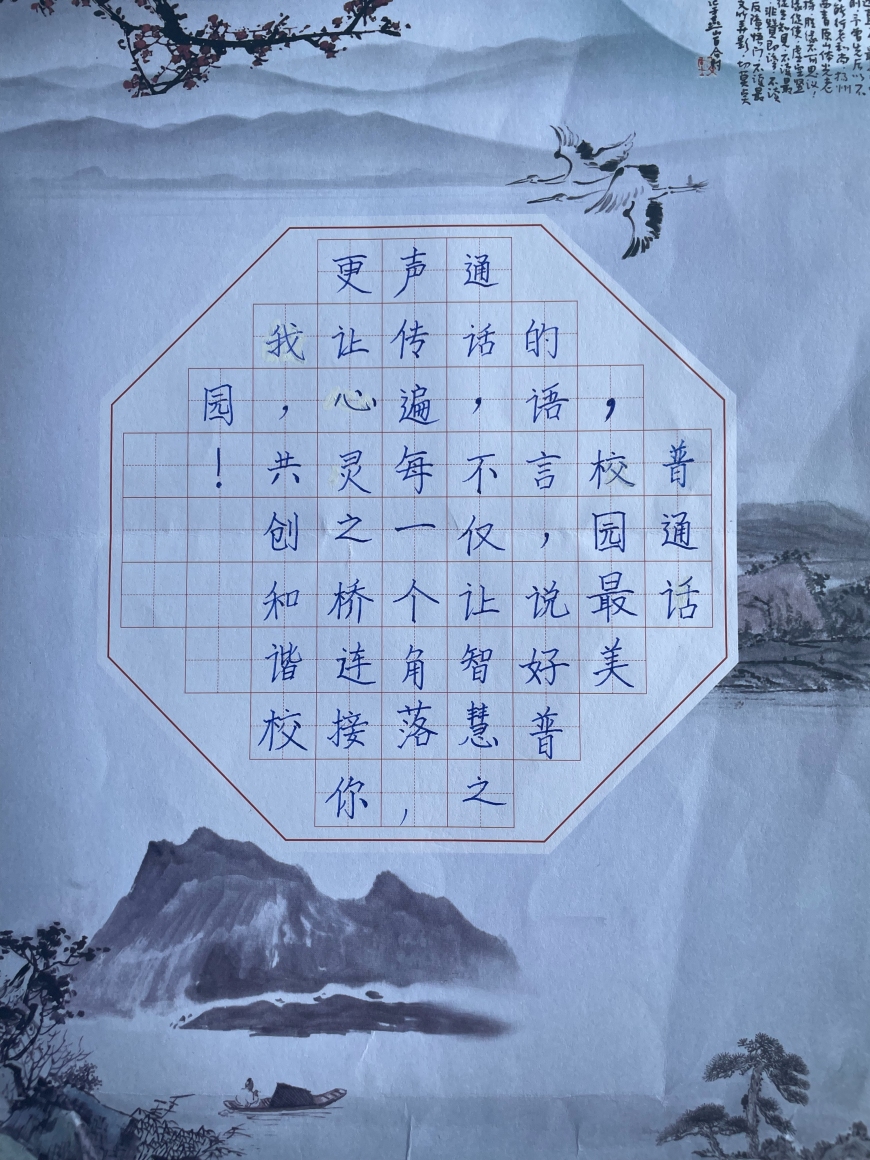 普通话
，校园最美
的语言，说好普
通话，不仅让智慧之
声传遍每一个角落，
更让心灵之桥连接你
我，共创和谐校
园！